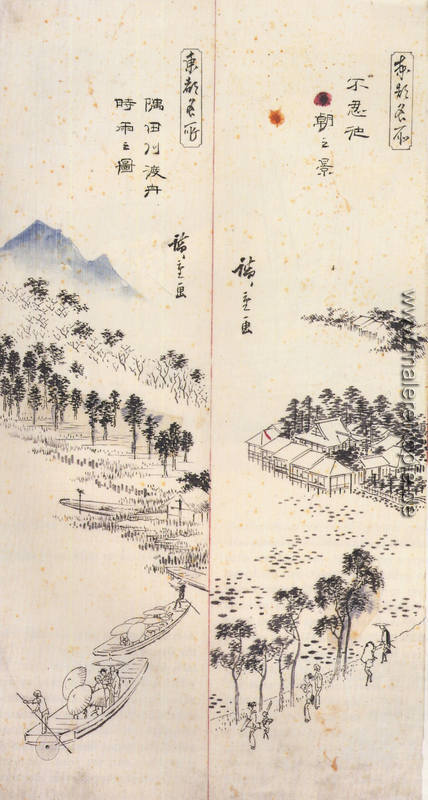 東都名所
不忍池
朝之景
廣重画
東都名所
隅田川渡舟
時雨之圖
廣重画